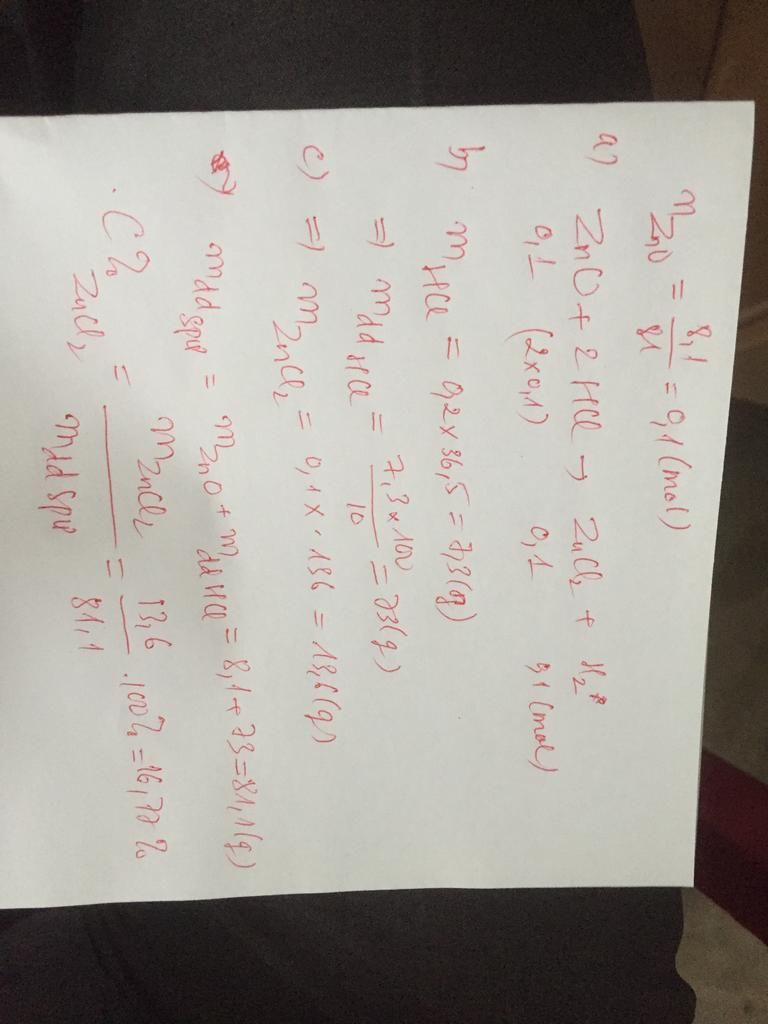 n ZnO = 8,1/81 = 0,1 (mol)
a) ZnO + 2 HCl → ZnCl2 + H2
0,1 (2x0,1) 0,1 0,1 (mol)
b) mHCl = 0,2 x 36,5 = 7,3 (g)
=) mdd HCl = 7,3 x 100/10 = 73 (g)
c) =) mZnCl2 = 0,1 x 136 = 13,6 (g)
mdd spư = mZnO + mdd HCl = 8,1 + 73 = 81,1 (g)
. C% ZnCl2 = mZnCl2/mdd spư = 13,6/81,1 . 100% = 16,77%